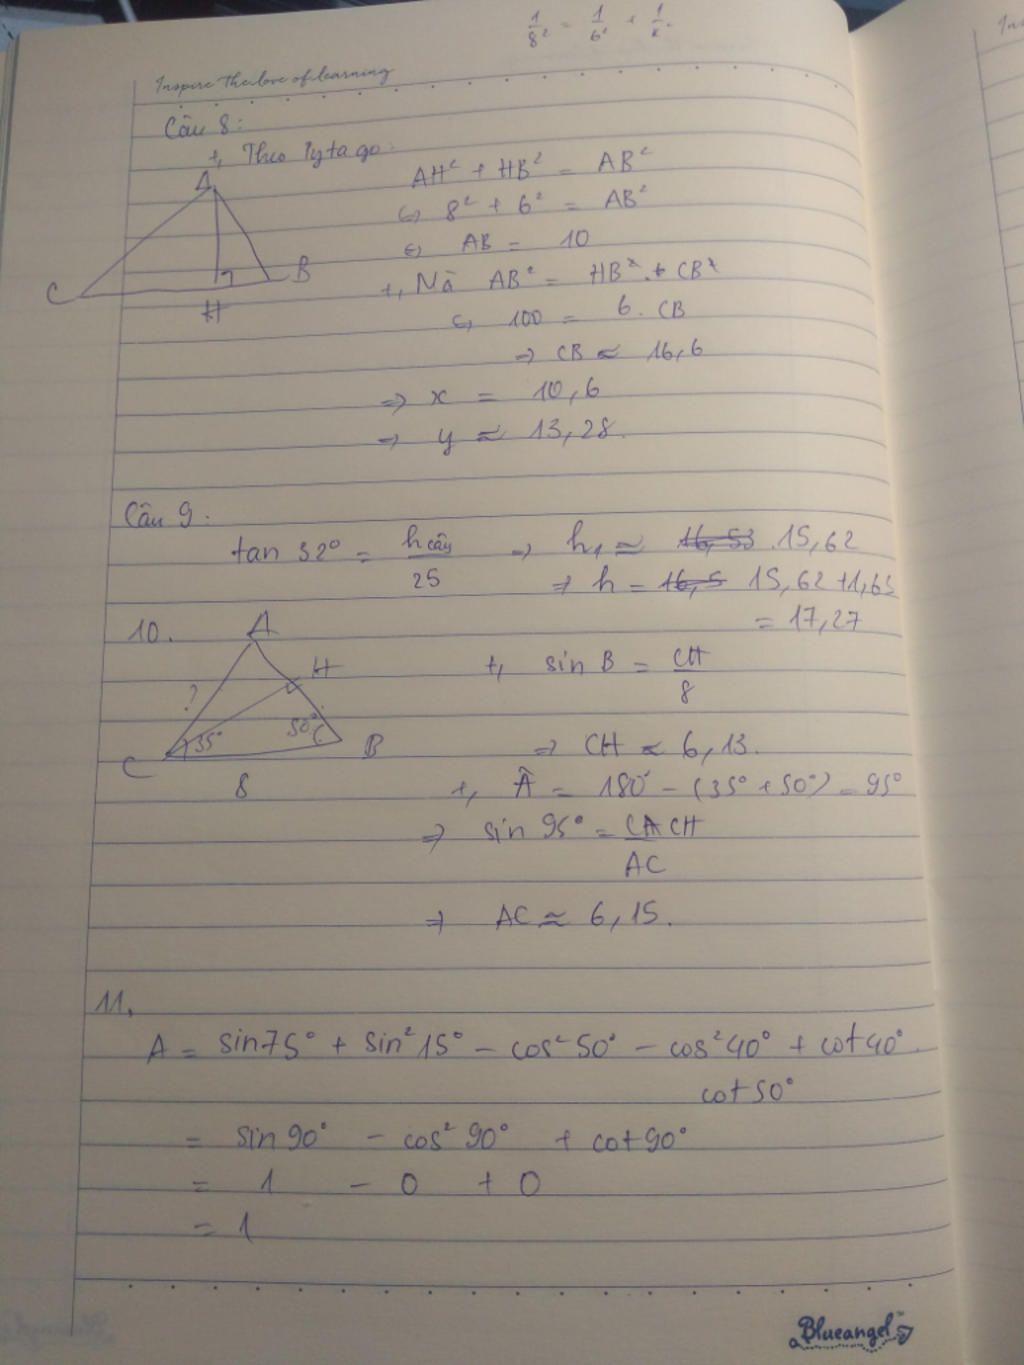 1/8² = 1/6² + 1/x.
Inspire the love of learning
Câu 8:
+, Theo Pytago:
A
C
B
H
AH² + HB² = AB²
⇔ 8² + 6² = AB²
⇔ AB = 10
+, Mà AB² = HB . CB
⇔ 100 = 6. CB
⇒ CB ≈ 16,6
⇒ x = 10,6
⇒ y ≈ 13,28.
Câu 9:
tan 32° = h cây / 25 ⇒ h₁ ≈ 15,62
⇒ h = 15,62 + 1,65
= 17,27
10.
A
H
?
35°
50°
C
B
8
+, sin B = CH / 8
⇒ CH ≈ 6,13.
+, Â = 180° - (35° + 50°) = 95°
⇒ sin 95° = CH / AC
⇒ AC ≈ 6,15.
11.
A = sin75° + sin²15° - cos²50° - cos²40° + cot40°.
cot50°
= sin90° - cos²90° + cot90°
= 1 - 0 + 0
= 1
Blueangel